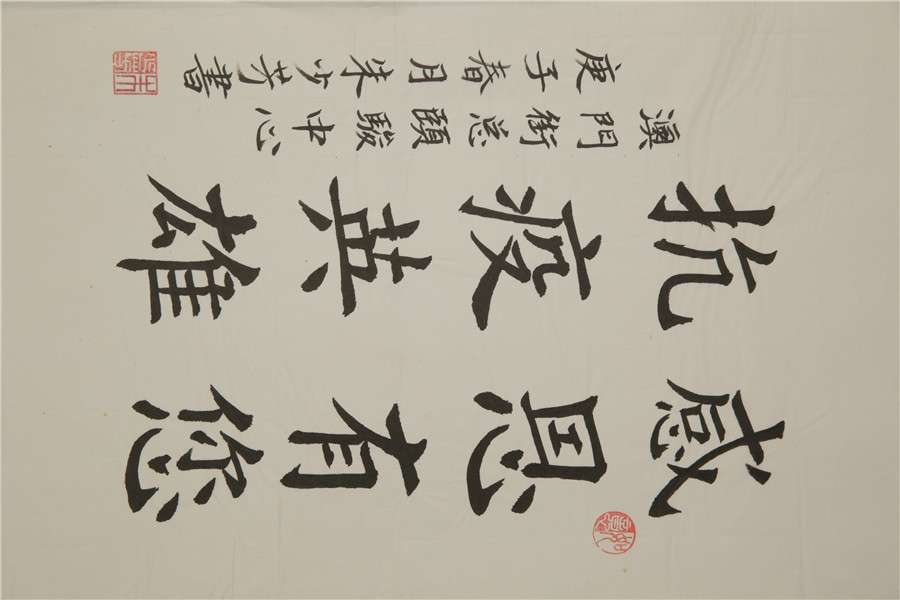 感恩有您
抗疫英雄
澳門街总頤駿中心
庚子春月朱少芳書